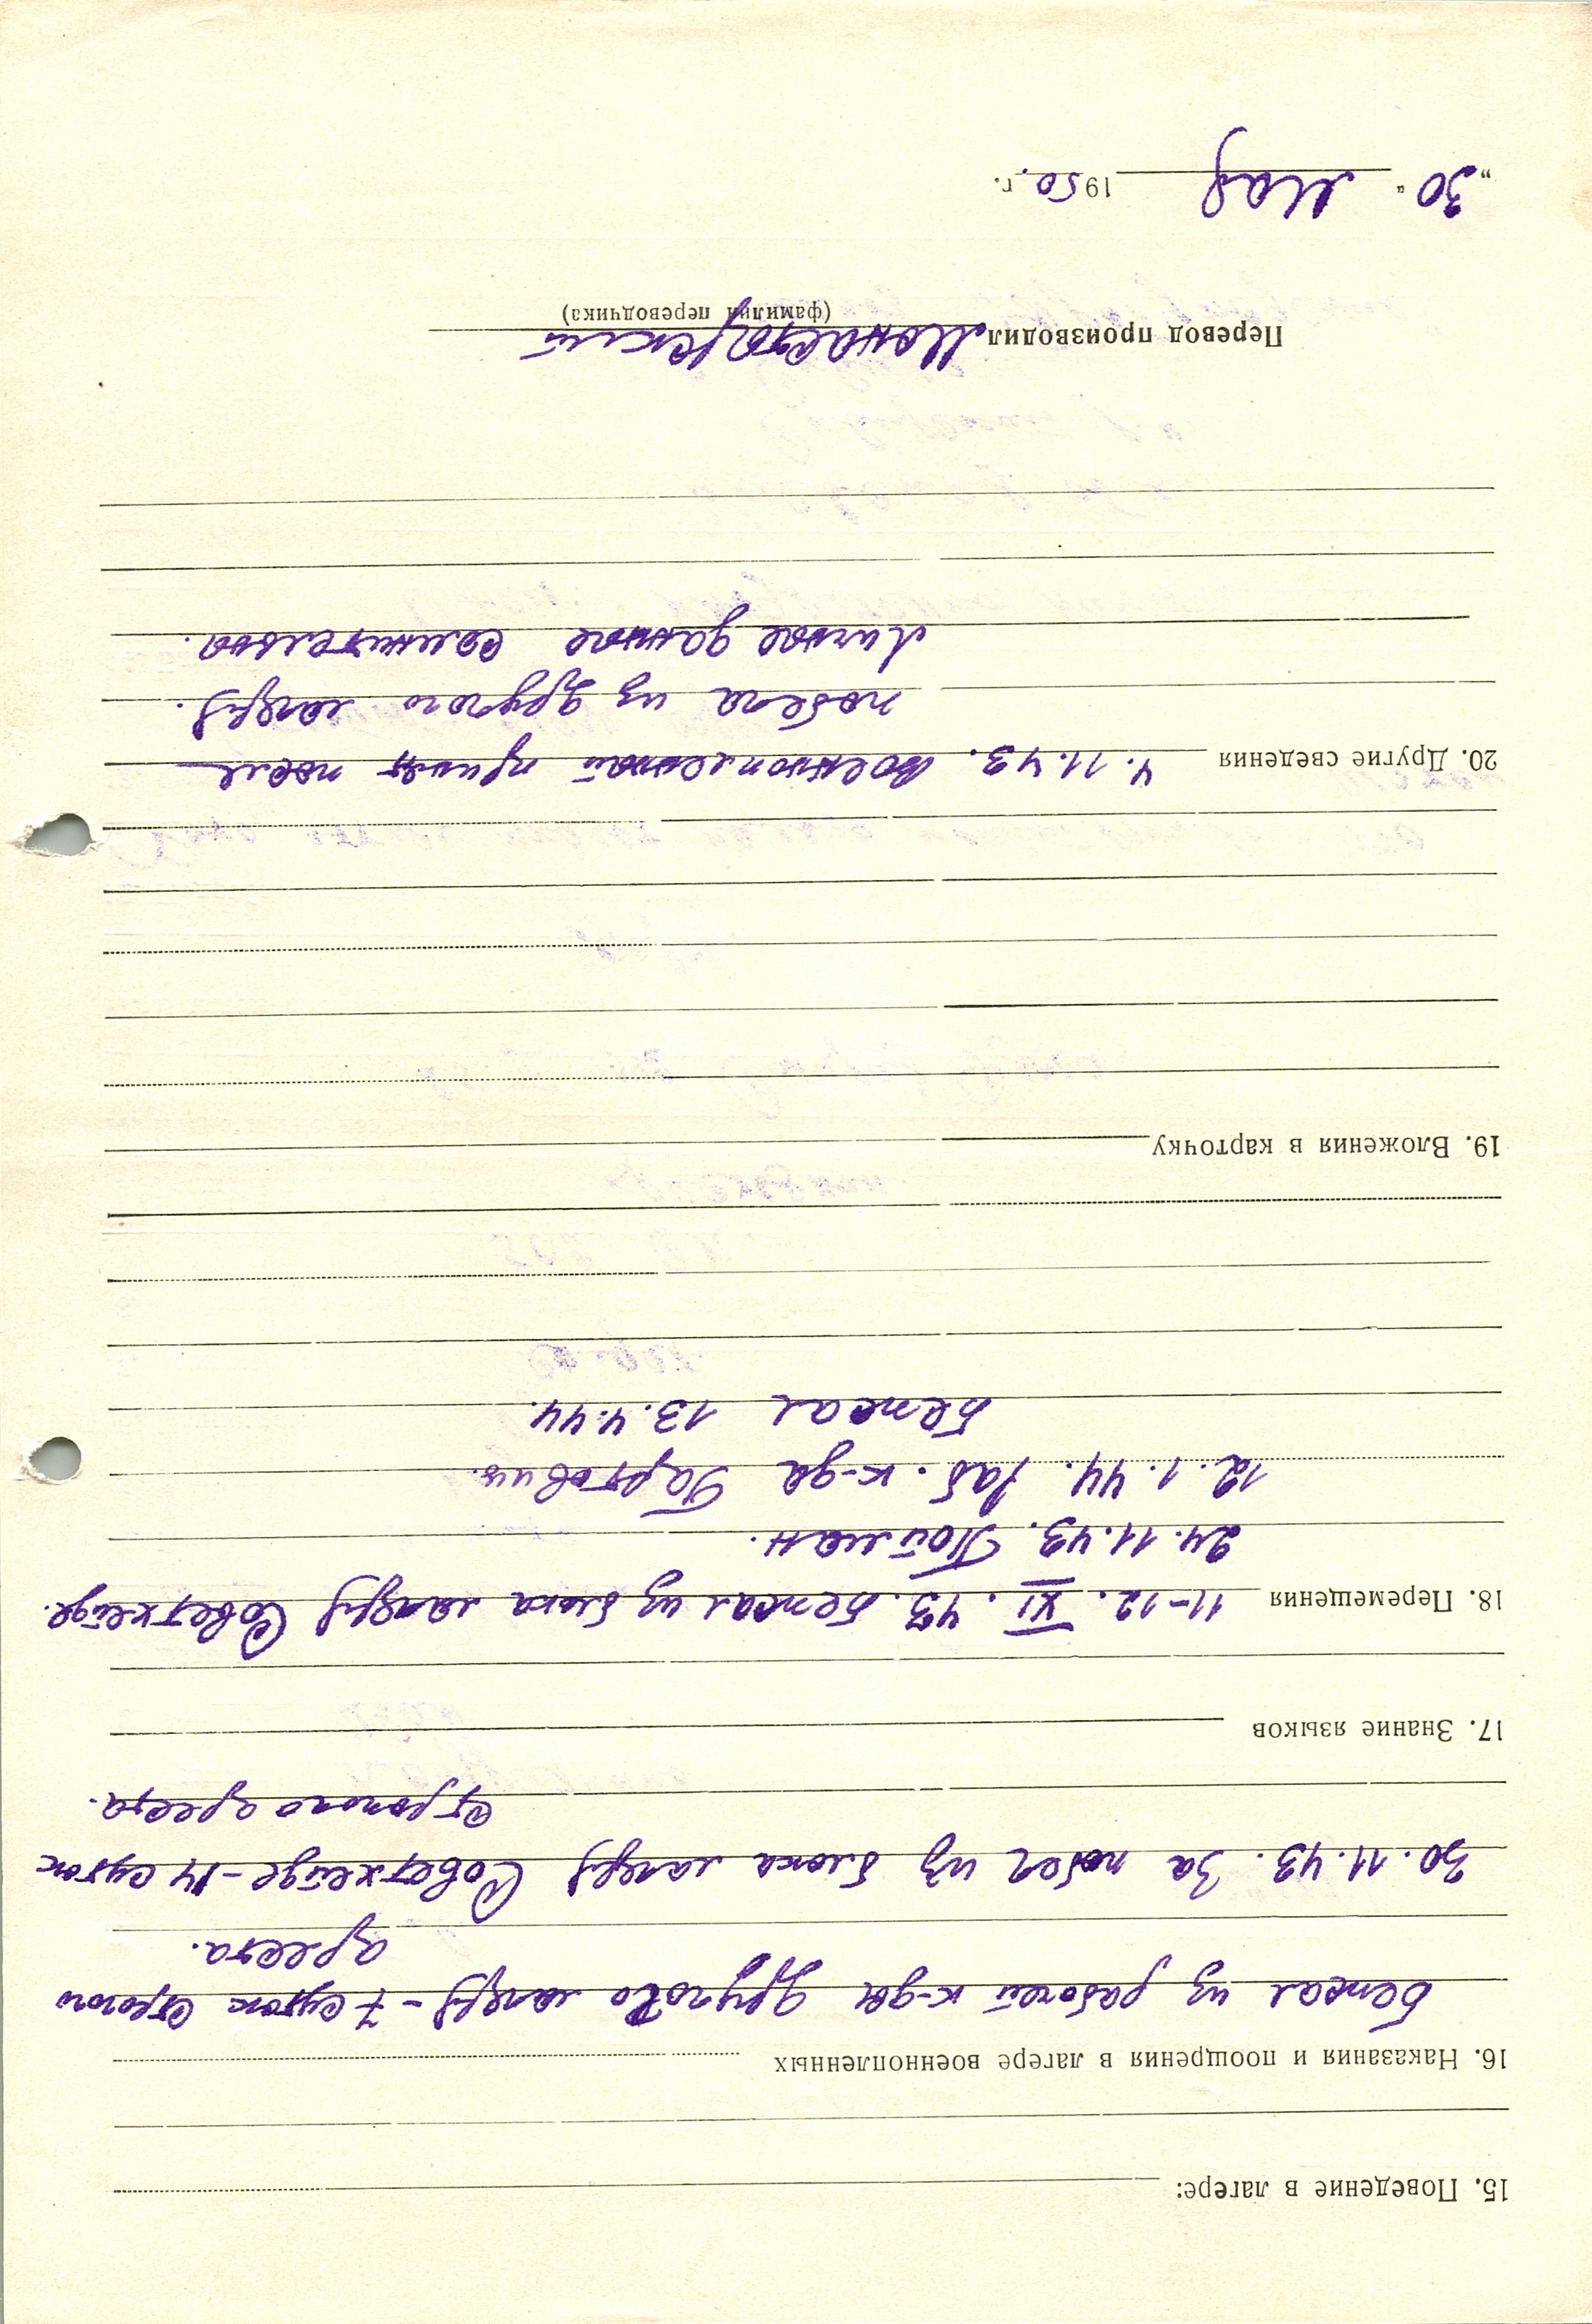 15. Поведение в лагере:
16. Наказания и поощрения в лагере военнопленных
Бежал из рабочей к-ды другого лагеря – 7 суток строгого
ареста.
30.11.43. За побег из блока лагеря Советхейде – 14 суток
строгого ареста.
17. Знание языков
18. Перемещения 11-12. XI. 43. Бежал из блока лагеря Советхейде.
24.11.43. Пойман.
12.1.44. Раб. к-да Гартовиц.
Бежал 13.4.44.
19. Вложения в карточку
20. Другие сведения 4.11.43. Военнопленный принят после
побега из другого лагеря.
Личные данные сомнительны.
Перевод производил Монастырский
(фамилия переводчика)
„30“ Мая 1950 г.